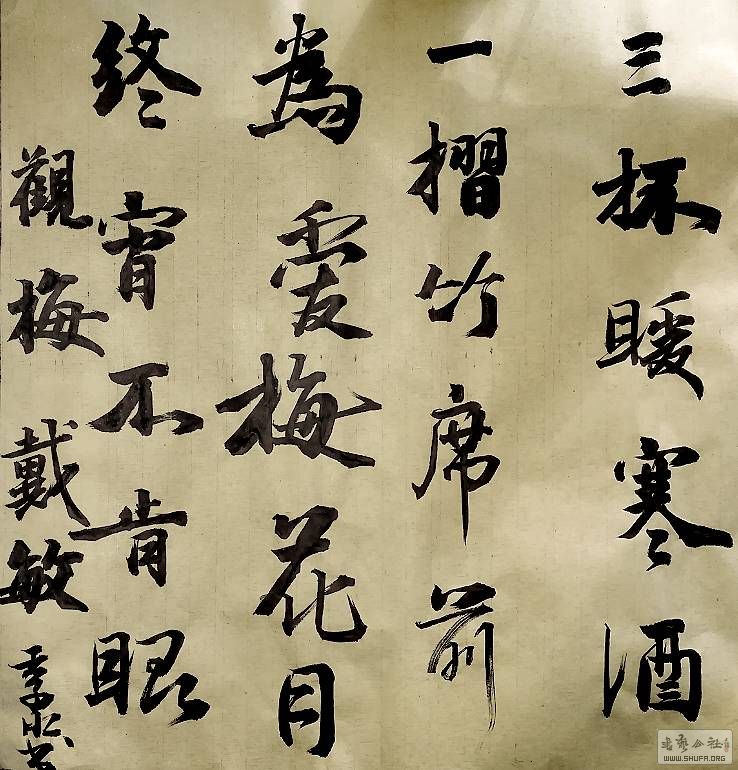 三杯暖寒酒
一摺竹席前
為愛梅花月
終宵不肯眠
觀梅 戴敏
書藝公社
WWW.SHUFA.ORG